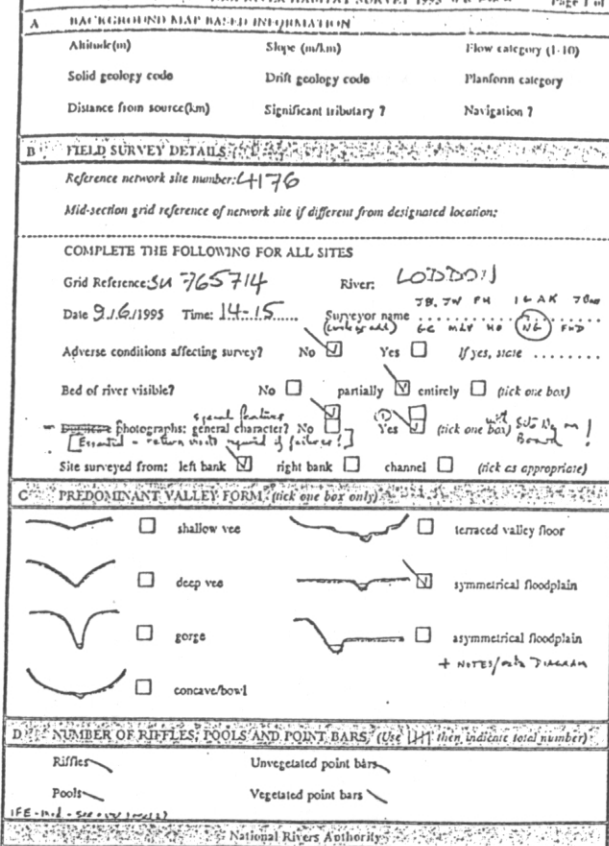 HABITAT SURVEY 1995 Page 1 of
A BACKGROUND MAP BASED INFORMATION
Altitude(m) Slope (m/km) Flow category (1-10)
Solid geology code Drift geology code Planform category
Distance from source(km) Significant tributary ? Navigation ?
B FIELD SURVEY DETAILS
Reference network site number: 4176
Mid-section grid reference of network site if different from designated location:
COMPLETE THE FOLLOWING FOR ALL SITES
Grid Reference: SU 765714 River: LODDON
Date 9/6/1995 Time: 14-15 Surveyor name
NG
Adverse conditions affecting survey? No Yes If yes, state
Bed of river visible? No partially entirely (tick one box)
special features
photographs: general character? No Yes (tick one box) with Site No on Board!
[Essential - return visits required if failures!]
Site surveyed from: left bank right bank channel (tick as appropriate)
C PREDOMINANT VALLEY FORM (tick one box only)
shallow vee terraced valley floor
deep vee symmetrical floodplain
gorge asymmetrical floodplain
+ NOTES/
DIAGRAM
concave/bowl
D NUMBER OF RIFFLES, POOLS AND POINT BARS (Use then indicate total number)
Riffles Unvegetated point bars
Pools Vegetated point bars
National Rivers Authority